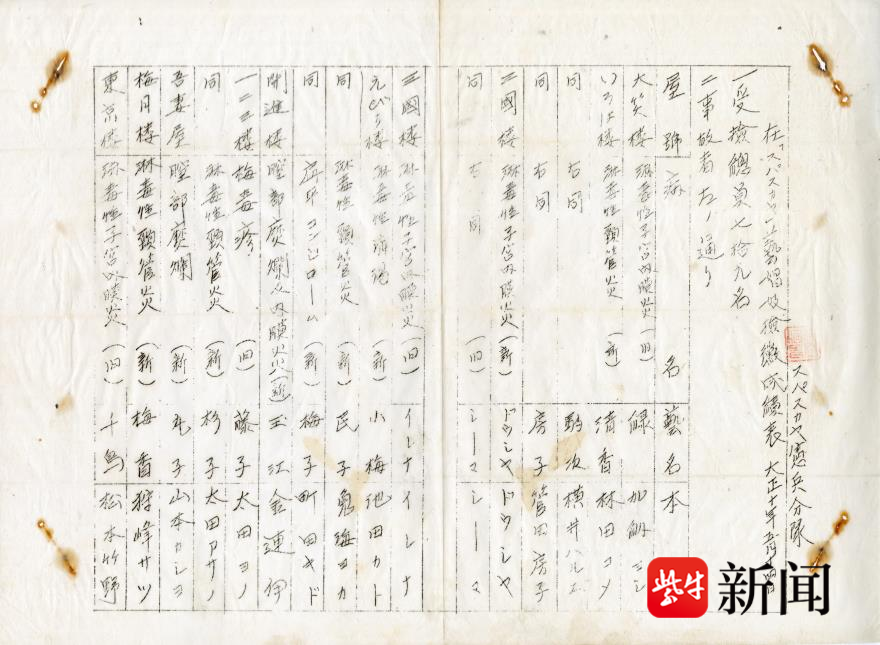 在「スパスカヤ」藝娼妓檢黴成績表 大正十年五月
スパスカヤ憲兵分隊
一受檢總員七拾九名
二事故者左ノ通リ
屋號 病名 藝名 本
大笑樓 淋毒性子宮内膜炎(旧) 緑 加納ヨシ
いろは樓 淋毒性頸管炎(新) 清香 林田コメ
同 右同 駒次 横井ハル
同 右同 房子 管田房子
三國樓 淋毒性子宮内膜炎(新) ドウシヤ ドウシヤ
同 右同(旧) シーマ シーマ
三國樓 淋毒性子宮内膜炎(旧) イレナ イレナ
えびす樓 淋毒性(新) 小梅 池田カト
同 淋毒性頸管炎(新) 民子 鬼海ヨカ
同 コンヂローム(新) 梅子 町田キド
開進樓 膣部糜爛 内膜炎(新) 玉江 金蓮伊
一二三樓 梅毒疹(旧) 藤子 太田ヨノ
同 淋毒性頸管炎(新) 杉子 太田アサノ
吾妻屋 膣部糜爛(新) 丸子 山本カシヨ
梅月樓 淋毒性頸管炎(新) 梅香 狩峰サツ
東京樓 淋毒性子宮内膜炎(旧) 千鳥 松本竹野
紫牛新闻